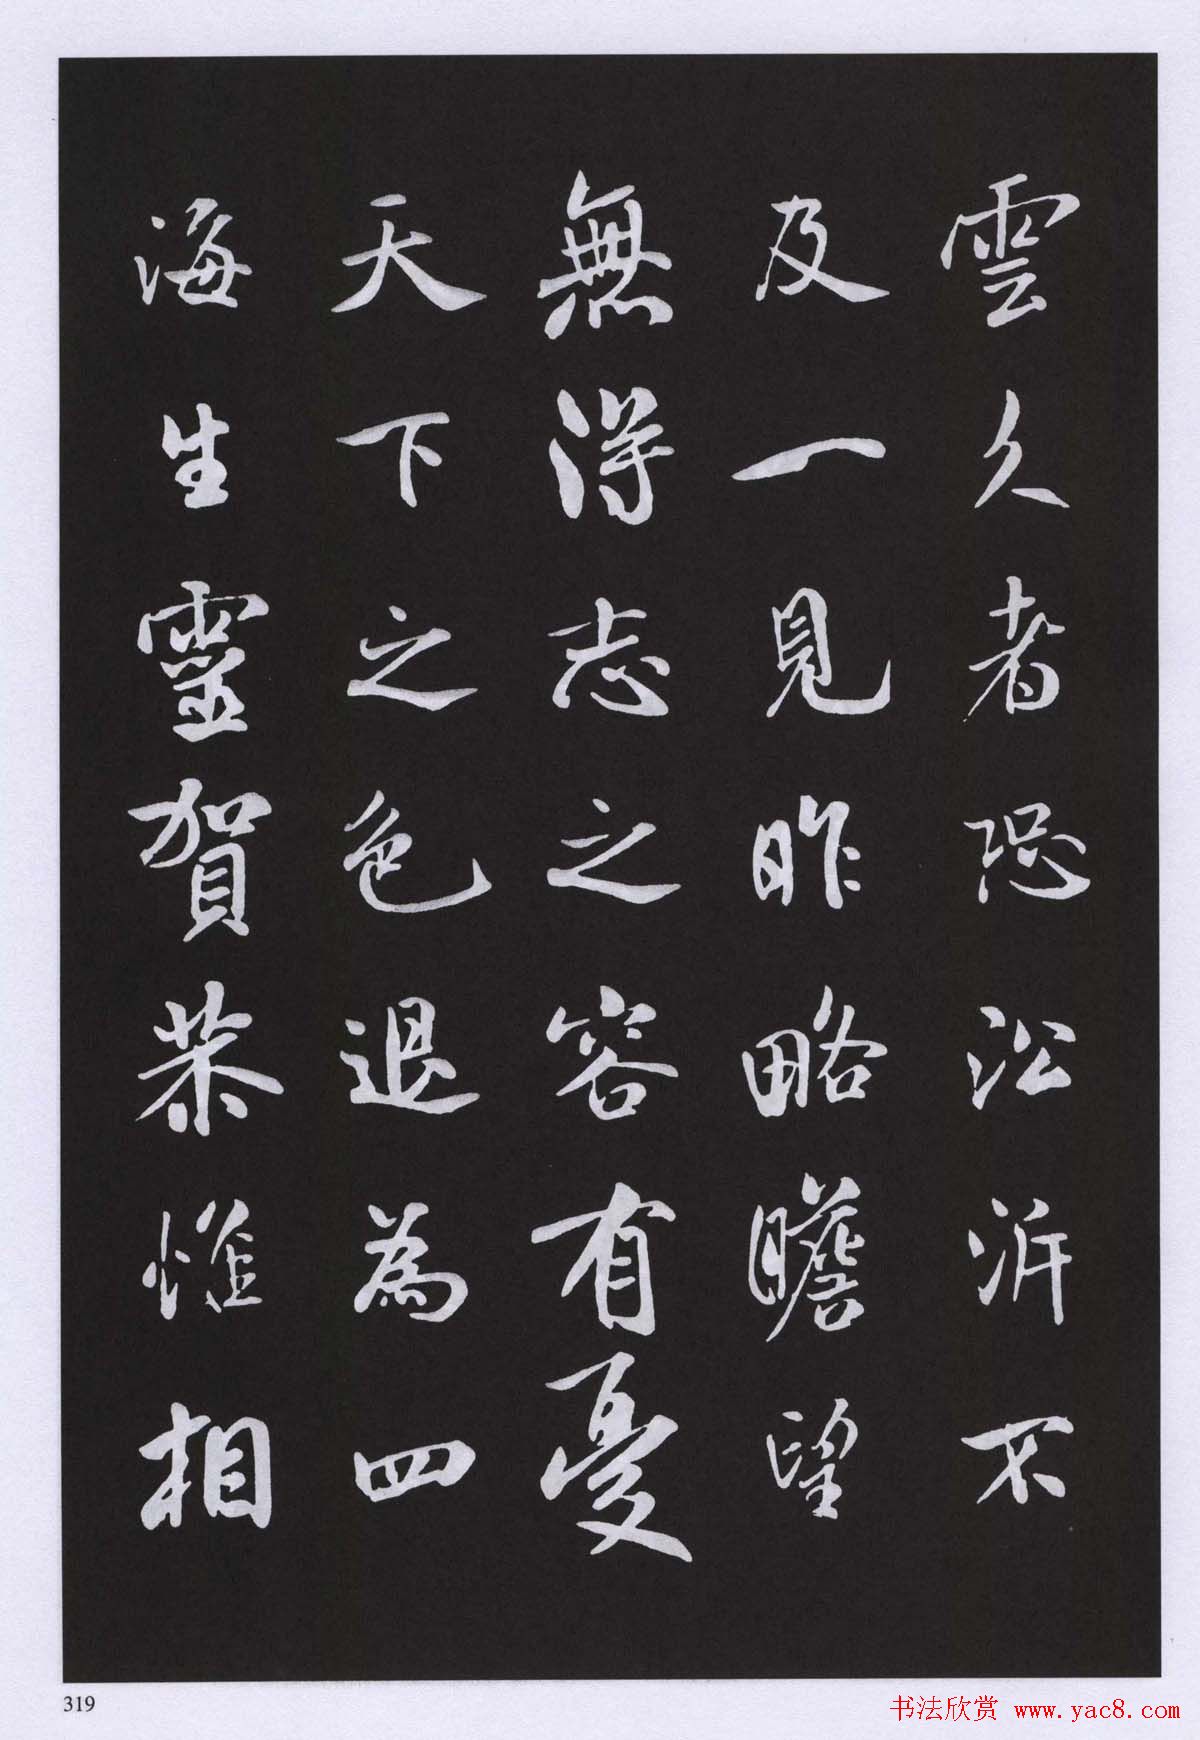 雲久者恐訟訴不
及一見昨略瞻望
無得志之容有憂
天下之色退為四
海生靈賀恭惟相
319
书法欣赏 www.yac8.com